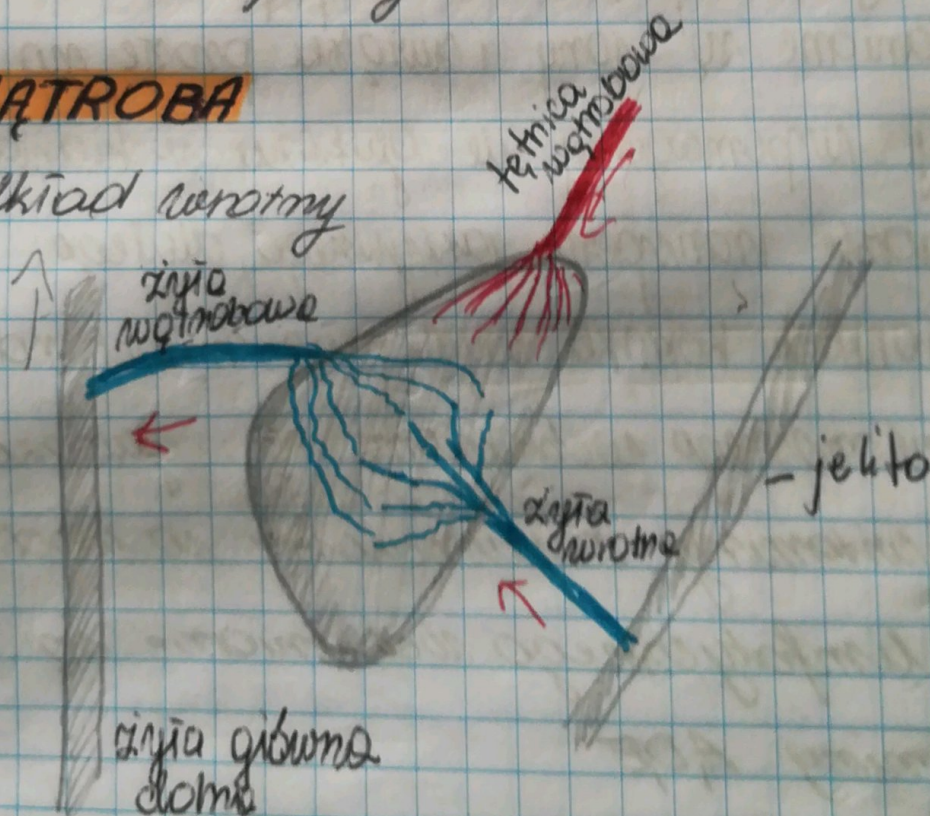 ĄTROBA
układ wrotny
tętnica
wątrobowa
żyła
wątrobowa
- jelito
żyła
wrotna
żyła główna
dolna